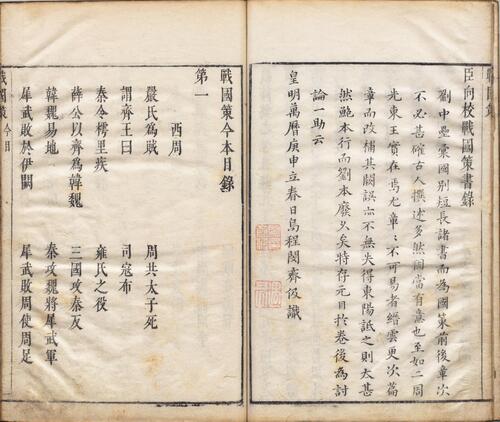 戰國策
臣向校戰國策書錄
劉中壘彙國別短長諸書而為國策前後章次
不必甚確古人撰述多然間當有意也至如二周
先東王實在焉尤章章不可易者縉雲更次篇
章而改補其闕誤亦不無失得東陽詆之則太甚
然鮑本行而劉本廢久矣特存元目扵卷後為討
論一助云
皇明萬曆庚申立春日烏程閔齊伋識
戰國策今本目錄
第一
西周
嚴氏為賊 周共太子死
謂齊王曰 司寇布
秦令樗里疾 雍氏之役
薛公以齊為韓魏 三國攻秦反
韓魏易地 秦攻魏將犀武軍
犀武敗於伊闕 犀武敗周使周足
戰國策 今目